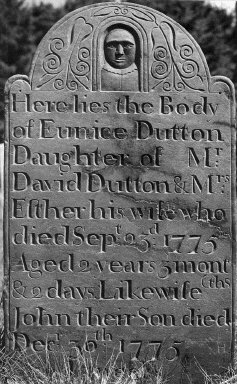 Here lies the Body
of Eunice Dutton
Daughter of Mr
David Dutton & Mrs
Eſther his wife who
died Sept 23d 1775
Aged 2 years 3 mont
(ths
& 2 days Likewiſe
John therr Son died
Decr 30th 1775